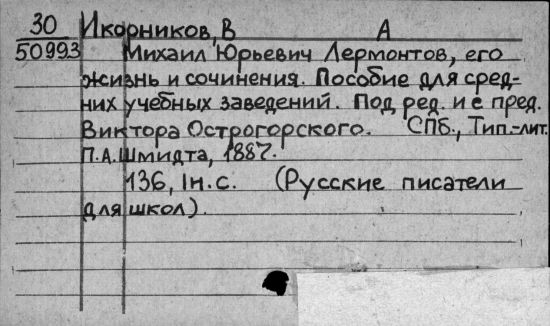 30 Икорников, В А
50993 Михаил Юрьевич Лермонтов, его
жизнь и сочинения. Пособие для сред-
них учебных заведений. Под ред. и с пред.
Виктора Острогорского. СПб., Тип.-лит.
П.А.Шмидта, 1887.
136, Iн.с. (Русские писатели
для школ).